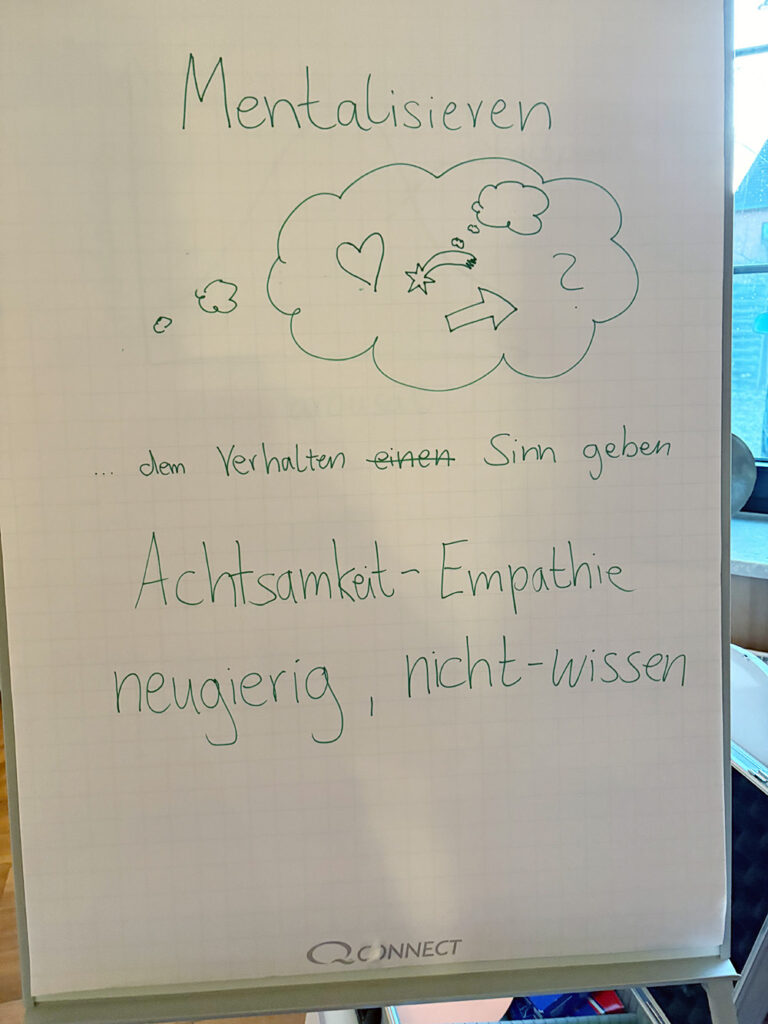 Mentalisieren
?
... dem Verhalten einen Sinn geben
Achtsamkeit - Empathie
neugierig, nicht-wissen
Q CONNECT